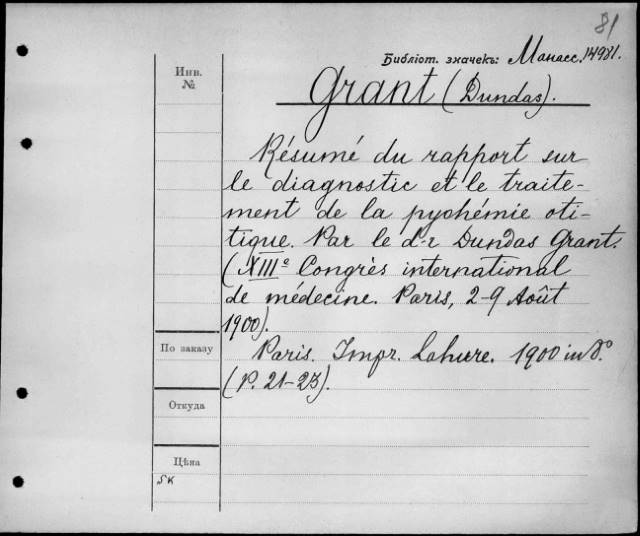 81
Библіот. значекъ: Манасс. 14981.
Инв. №
Grant (Dundas).
Résumé du rapport sur
le diagnostic et le traite-
ment de la pyohémie oti-
tique. Par le d-r Dundas Grant.
(XIIIe Congrès international
de médecine. Paris, 2-9 Août
1900).
По заказу
Paris. Impr. Lahure. 1900 in 8.°
(P. 21-23).
Откуда
Цѣна
SK